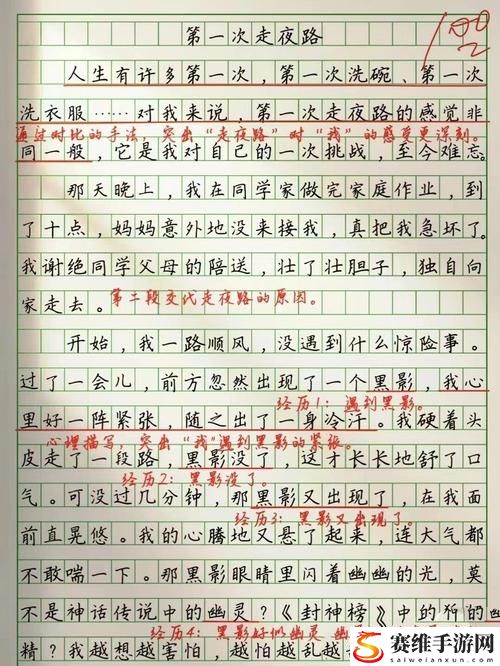 第一次走夜路
100
人生有许多第一次，第一次洗碗、第一次
洗衣服……对我来说，第一次走夜路的感觉非
通过对比的手法，突出“走夜路”时“我”的感受更深刻。
同一般，它是我对自己的一次挑战，至今难忘。
那天晚上，我在同学家做完家庭作业，到
了十点，妈妈意外地没来接我，真把我急坏了。
我谢绝同学父母的陪送，壮了壮胆子，独自向
家走去。
第二段交代走夜路的原因。
开始，我一路顺风，没遇到什么惊险事。
过了一会儿，前方忽然出现了一个黑影，我心
经历1：遇到黑影。
里好一阵紧张，随之出了一身冷汗。我硬着头
心理描写，突出“我”遇到黑影的紧张。
皮走了一段路，黑影没了，这才长长地舒了口
经历2：黑影没了。
气。可没过几分钟，那黑影又出现了，在我面
经历3：黑影又出现了。
前直晃悠。我的心腾地又悬了起来，连大气都
不敢喘一下。那黑影眼睛里闪着幽幽的光，莫
不是神话传说中的幽灵？《封神榜》中的
经历4：黑影好似幽灵
精？我越想越害怕，越怕越乱越
赛维手游网
www.saiweilanxun.com